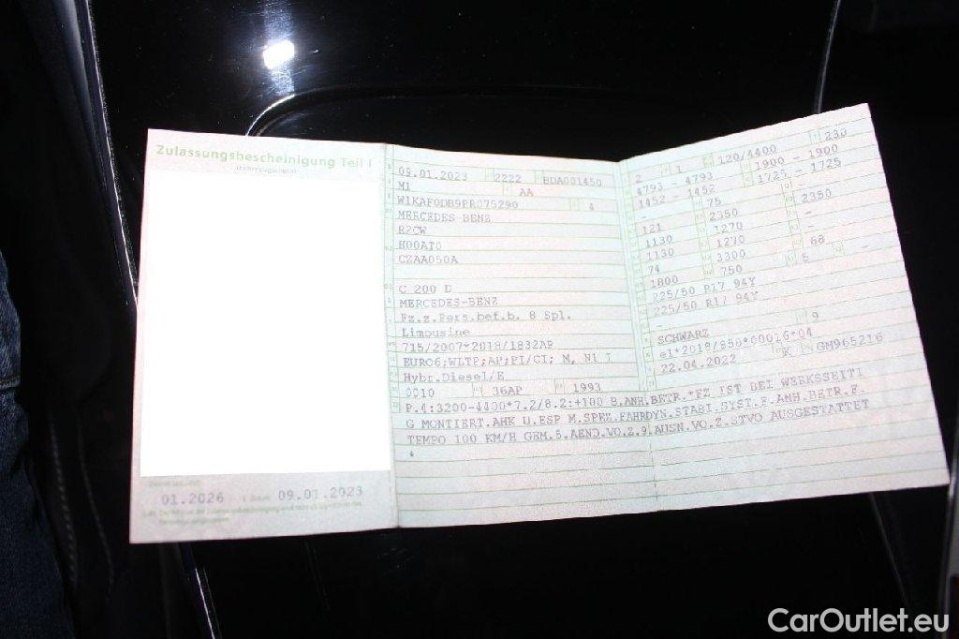 Zulassungsbescheinigung Teil I
01.2026
09.01.2023
09.01.2023 2222 BDA001450
M1 AA
W1KAF0DB9PR075290 4
MERCEDES BENZ
R2CW
H00AT0
CZAA050A
C 200 D
MERCEDES-BENZ
Fz.z.Pers.bef.b. 8 Spl.
Limousine
715/2007*2018/1832AP
EURO6;WLTP;AP;PI/CI; M, N1 I
Hybr.Diesel/E
0010 36AP 1993
2 1 120/4400 230
4793 - 4793 1900 - 1900
1452 - 1452 1725 - 1725
- 75 2350
121 2350 -
1130 1270 -
1130 1270 -
74 3300 68 -
1800 750 5
225/50 R17 94Y
225/50 R17 94Y
-
SCHWARZ 9
e1*2018/858*00016*04
22.04.2022 K GM965216
P.4:3200-4400*7.2/8.2:+100 B.ANH.BETR.*FZ IST BEI WERKSSEITI
G MONTIERT.AHK U.ESP M.SPEZ.FAHRDYN.STABI.SYST.F.ANH.BETR.F.
TEMPO 100 KM/H GEM.5.AEND.VO.Z.9.AUSN.VO.Z.STVO AUSGESTATTET
*
CarOutlet.eu